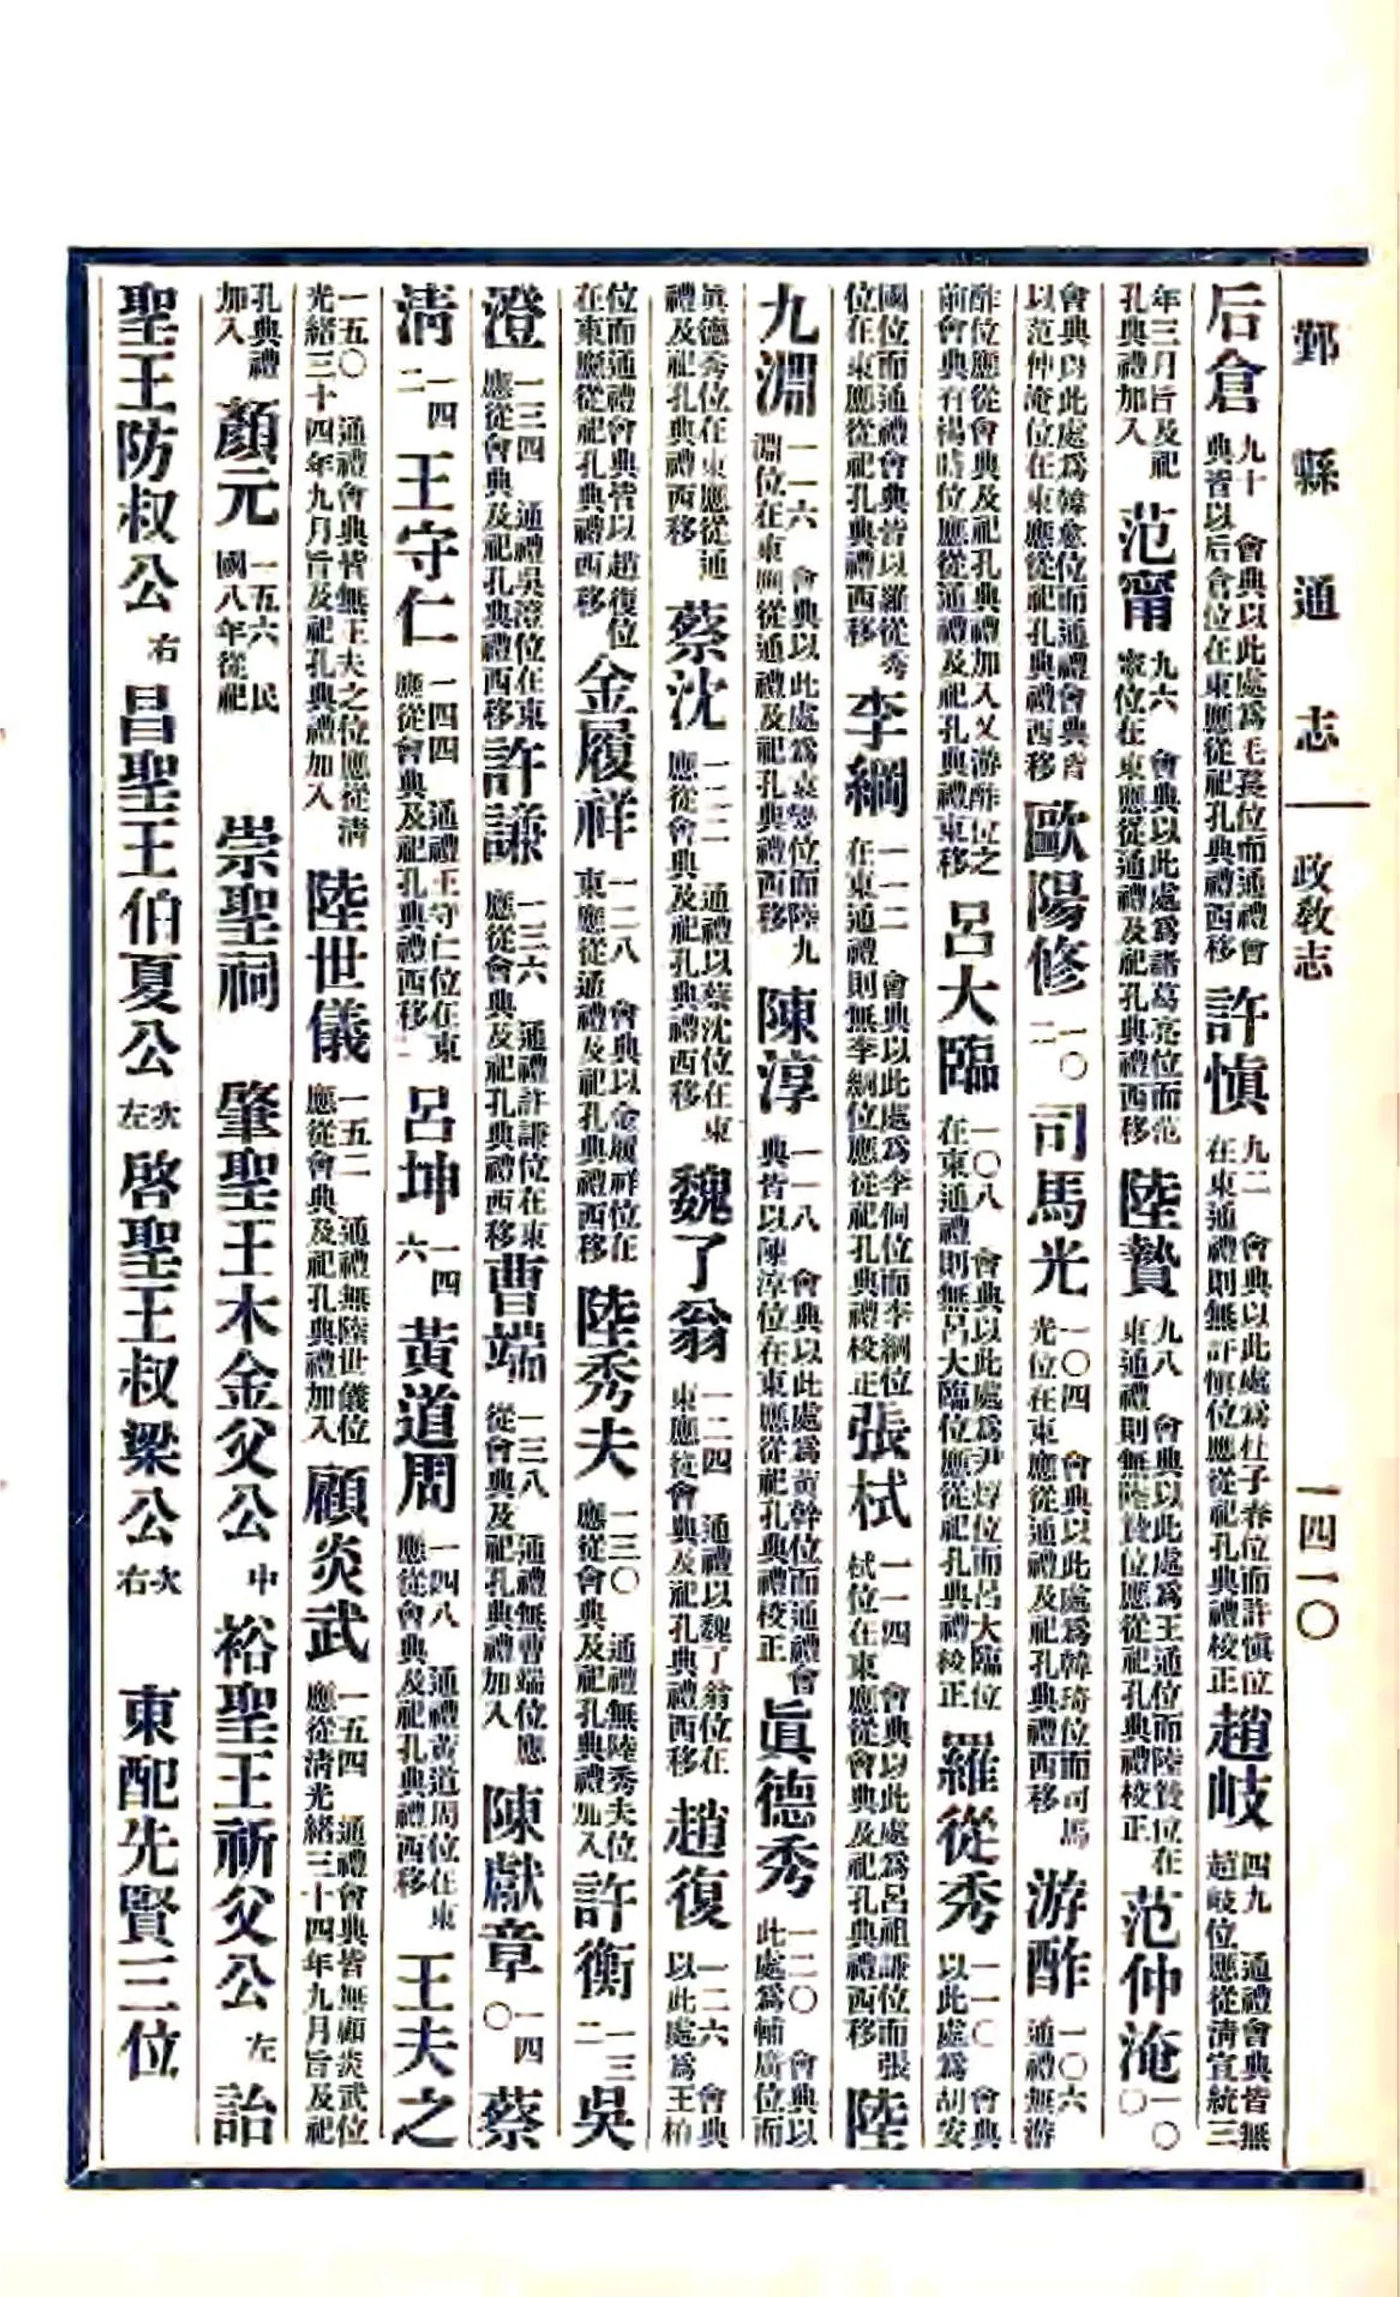 鄞縣通志 政教志 一四一〇
后倉 九十 會典以此處爲毛萇位而通禮會典皆以后倉位在東應從祀孔典禮西移 許慎 九二 會典以此處爲杜子春位而許慎位在東通禮則無許慎位應從祀孔典禮校正 趙岐 四九 通禮會典皆無趙岐位應從清宣統三
年三月旨及祀孔典禮加入 范甯 九六 會典以此處爲諸葛亮位而范甯位在東應從通禮及祀孔典禮西移 陸贄 九八 會典以此處爲王通位而陸贄位在東通禮則無陸贄位應從祀孔典禮校正 范仲淹 一〇〇
會典以此處爲韓愈位而通禮會典皆以范仲淹位在東應從祀孔典禮西移 歐陽修 一〇二 司馬光 一〇四 會典以此處爲韓琦位而司馬光位在東應從通禮及祀孔典禮西移 游酢 一〇六 通禮無游
酢位應從會典及祀孔典禮加入又游酢位之前會典有楊時位應從通禮及祀孔典禮東移 呂大臨 一〇八 會典以此處爲尹焞位而呂大臨位在東通禮則無呂大臨位應從祀孔典禮校正 羅從秀 一一〇 會典以此處爲胡安
國位而通禮會典皆以羅從秀位在東應從祀孔典禮西移 李綱 一一二 會典以此處爲李侗位而李綱位在東通禮則無李綱位應從祀孔典禮校正 張栻 一一四 會典以此處爲呂祖謙位而張栻位在東應從會典及祀孔典禮西移 陸
九淵 一一六 會典以此處爲袁燮位而陸九淵位在東應從通禮及祀孔典禮西移 陳淳 一一八 會典以此處爲黃幹位而通禮會典皆以陳淳位在東應從祀孔典禮校正 眞德秀 一二〇 會典以此處爲輔廣位而
眞德秀位在東應從通禮及祀孔典禮西移 蔡沈 一二二 通禮以蔡沈位在東應從會典及祀孔典禮西移 魏了翁 一二四 通禮以魏了翁位在東應從會典及祀孔典禮西移 趙復 一二六 會典以此處爲王柏
位而通禮會典皆以趙復位在東應從祀孔典禮西移 金履祥 一二八 會典以金履祥位在東應從通禮及祀孔典禮西移 陸秀夫 一三〇 通禮無陸秀夫位應從會典及祀孔典禮加入 許衡 一三二 吳
澄 一三四 通禮吳澄位在東應從會典及祀孔典禮西移 許謙 一三六 通禮許謙位在東應從會典及祀孔典禮西移 曹端 一三八 通禮無曹端位應從會典及祀孔典禮加入 陳獻章 一四〇 蔡
清 一四二 王守仁 一四四 通禮王守仁位在東應從會典及祀孔典禮西移 呂坤 一四六 黃道周 一四八 通禮黃道周位在東應從會典及祀孔典禮西移 王夫之
一五〇 通禮會典皆無王夫之位應從清光緒三十四年九月旨及祀孔典禮加入 陸世儀 一五二 通禮無陸世儀位應從會典及祀孔典禮加入 顧炎武 一五四 通禮會典皆無顧炎武位應從清光緒三十四年九月旨及祀
孔典禮加入 顏元 一五六 民國八年從祀 崇聖祠 肇聖王木金父公 中 裕聖王祈父公 左 詒
聖王防叔公 右 昌聖王伯夏公 次左 啓聖王叔梁公 次右 東配先賢三位